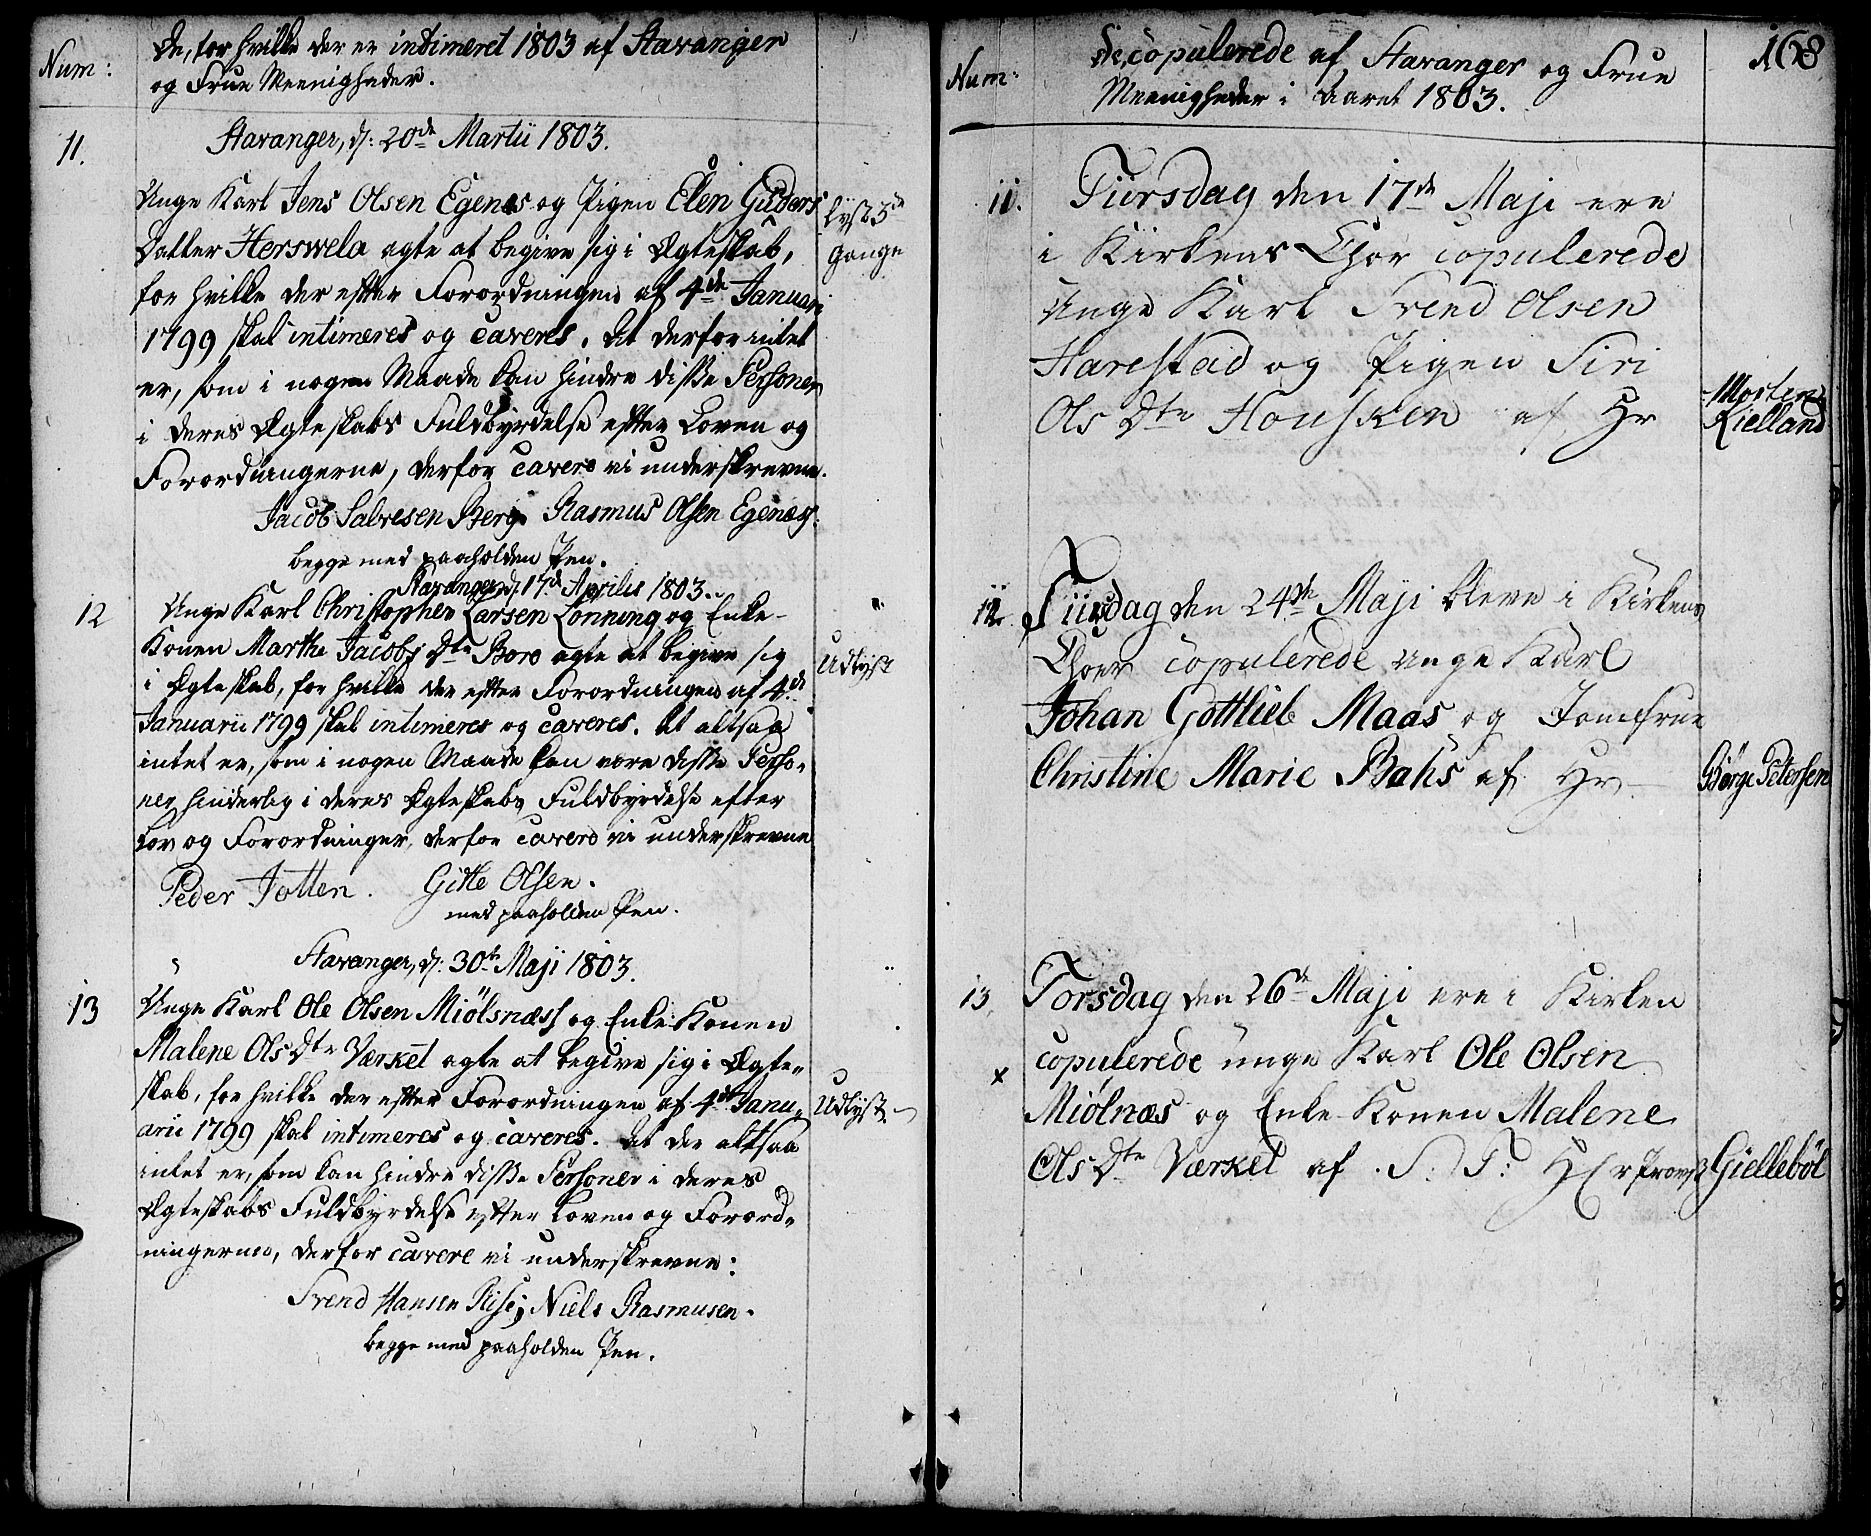 Num:
De, for hvilke der er intimeret 1803 af Stavanger
og Frue Meenigheder.
11.
Stavanger, d: 20de Martii 1803.
Unge Karl Jens Olsen Egenæs og Pigen Elen Guders
Datter Herswela agte at begive sig i Ægteskab,
for hvilke der efter Forordningen af 4de Januari
1799 skal intimeres og caveres. At derfor intet
er, som i nogen Maade kan hindre disse Personer
i deres Ægteskabs Fuldbyrdelse efter Loven og
Forordningerne, derfor cavere vi underskrevne.
Jacob Salvesen Berg. Rasmus Olsen Egenæs.
begge med paaholden Pen.
Lyst 3de
gange
Stavanger d. 17de Aprilis 1803.
12
Unge Karl Christopher Larsen Lønning og Enke-
Konen Marthe Jacobs Dtr Boro agte at begive sig
i Ægteskab, for hvilke der efter Forordningen af 4de
Januarii 1799 skal intimeres og caveres. At altsaa
intet er, som i nogen Maade kan være disse Perso-
ner hinderlig i deres Ægteskabs Fuldbyrdelse efter
Lov og Forordninger, derfor cavere vi underskrevne
Peder Jotten. Gitle Olsen.
med paaholden Pen.
Udlyst
Stavanger, d: 30te Maji 1803.
13
Unge Karl Ole Olsen Miølsnæss og Enke Konen
Malene Ols Dtr Værket agte at begive sig i Ægte-
skab, for hvilke der efter Forordningen af 4de Janu-
arii 1799 skal intimeres og caveres. At der altsaa
intet er, som kan hindre disse Personer i deres
Ægteskabs Fuldbyrdelse efter Loven og Forord-
ningerne, derfor cavere vi underskrevne:
Svend Hansen Riise, Niels Rasmusen.
begge med paaholden Pen.
Udlyst
Num:
De copulerede af Stavanger og Frue
Meenigheder i Aaret 1803.
168
11.
Tiirsdag den 17de Maji ere
i Kirkens Chor copulerede
Unge Karl Svend Olsen
Harestad og Pigen Siri
Ols Dtr Housken af Hr
Morten
Kielland
12.
Tiirsdag den 24de Maji bleve i Kirkens
Choer copulerede unge Karl
Johan Gottlieb Maas og Jomfrue
Christine Marie Bahs af Hr
Børge Petersen
13.
Torsdag den 26de Maji ere i Kirken
x
copulerede unge Karl Ole Olsen
Miølnæs og Enke Konen Malene
Ols Dtr Værket af S: T: Hr Provst
Giellebøl